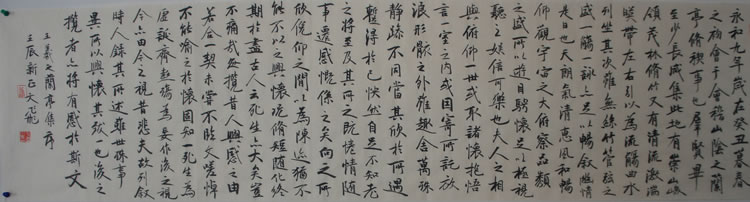 永和九年歲在癸丑暮春
之初會于會稽山陰之蘭
亭脩稧事也羣賢畢
至少長咸集此地有崇山峻
領茂林脩竹又有清流激湍
暎帶左右引以為流觴曲水
列坐其次雖無絲竹管弦之
盛一觴一詠亦足以暢敘幽情
是日也天朗氣清惠風和暢
仰觀宇宙之大俯察品類
之盛所以遊目騁懷足以極視
聽之娛信可樂也夫人之相
與俯仰一世或取諸懷抱悟
言一室之內或因寄所託放
浪形骸之外雖趣舍萬殊
靜躁不同當其欣於所遇
暫得於己怏然自足不知老
之將至及其所之既惓情隨
事遷感慨係之矣向之所
欣俛仰之閒以為陳迹猶不
能不以之興懷況脩短隨化終
期於盡古人云死生亦大矣豈
不痛哉每攬昔人興感之由
若合一契未嘗不臨文嗟悼
不能喻之於懷固知一死生為
虛誕齊彭殤為妄作後之視
今亦由今之視昔悲夫故列敘
時人錄其所述雖世殊事
異所以興懷其致一也後之
攬者亦將有感於斯文
王羲之蘭亭集序
壬辰新正文飛